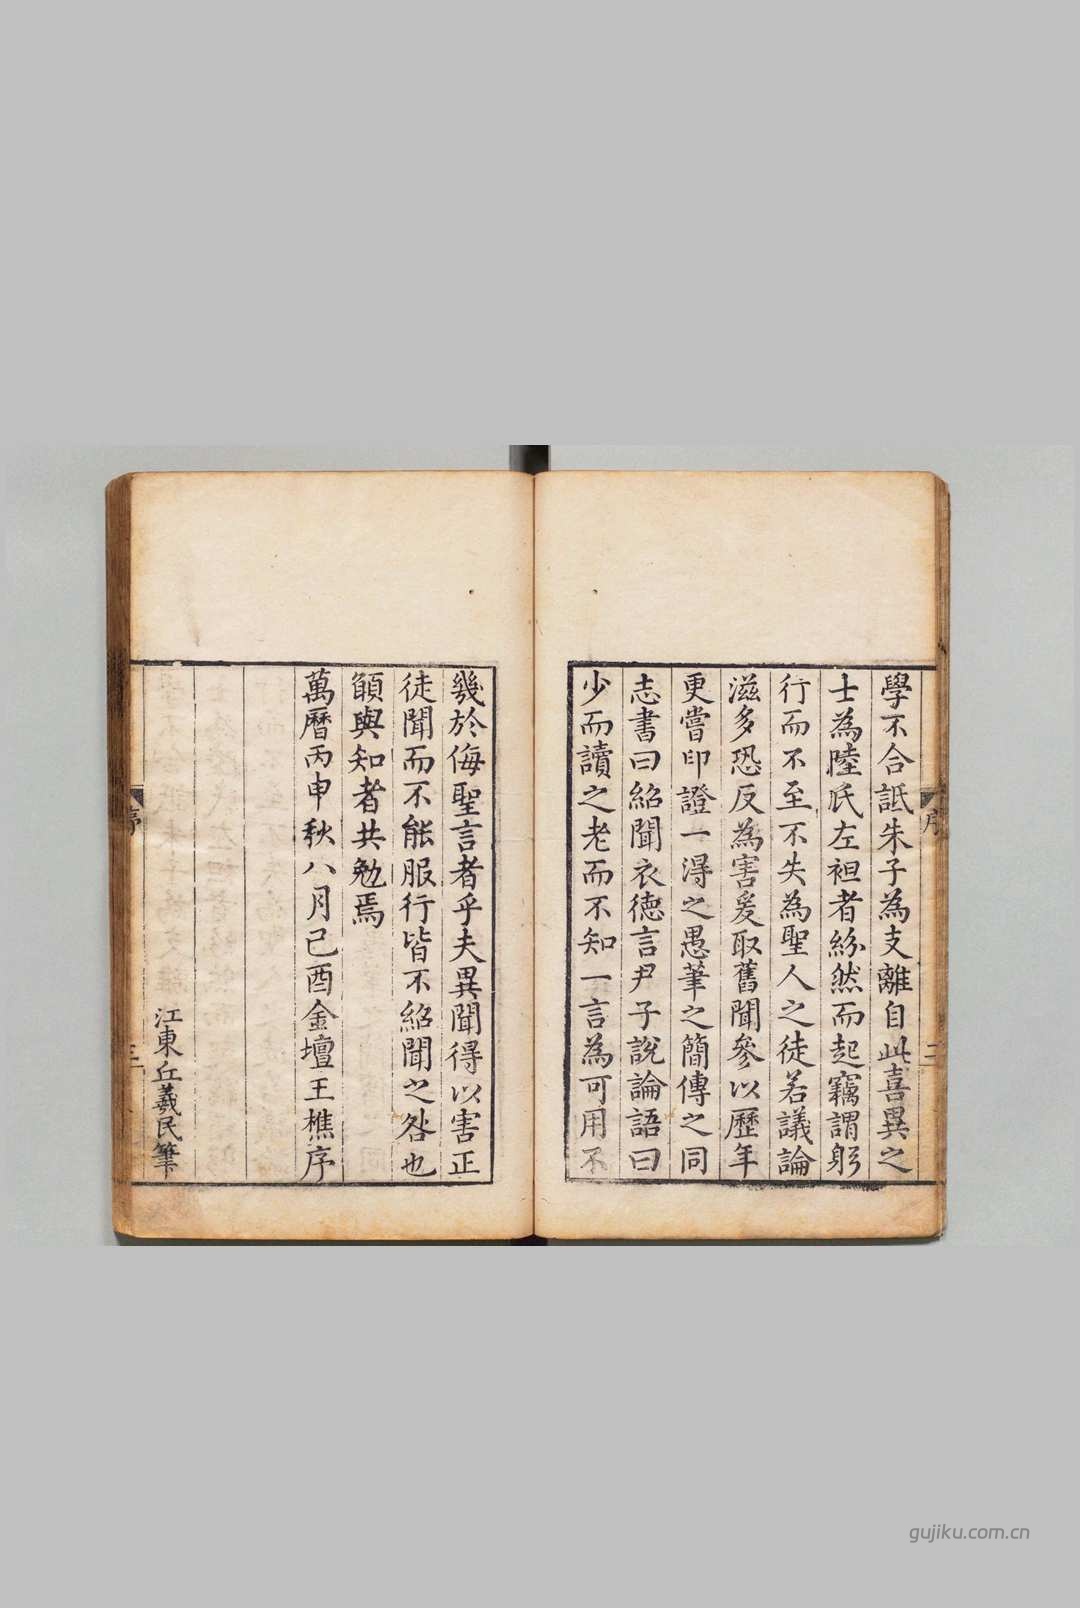 學不合詆朱子為支離自此喜異之
士為陸氏左袒者紛然而起竊謂躬
行而不至不失為聖人之徒若議論
滋多恐反為害爰取舊聞參以歷年
更嘗印證一得之愚筆之簡傳之同
志書曰紹聞衣德言尹子說論語曰
少而讀之老而不知一言為可用不
序
二
幾於侮聖言者乎夫異聞得以害正
徒聞而不能服行皆不紹聞之咎也
願與知者共勉焉
萬曆丙申秋八月己酉金壇王樵序
江東丘羲民筆
序
三
gujiku.com.cn